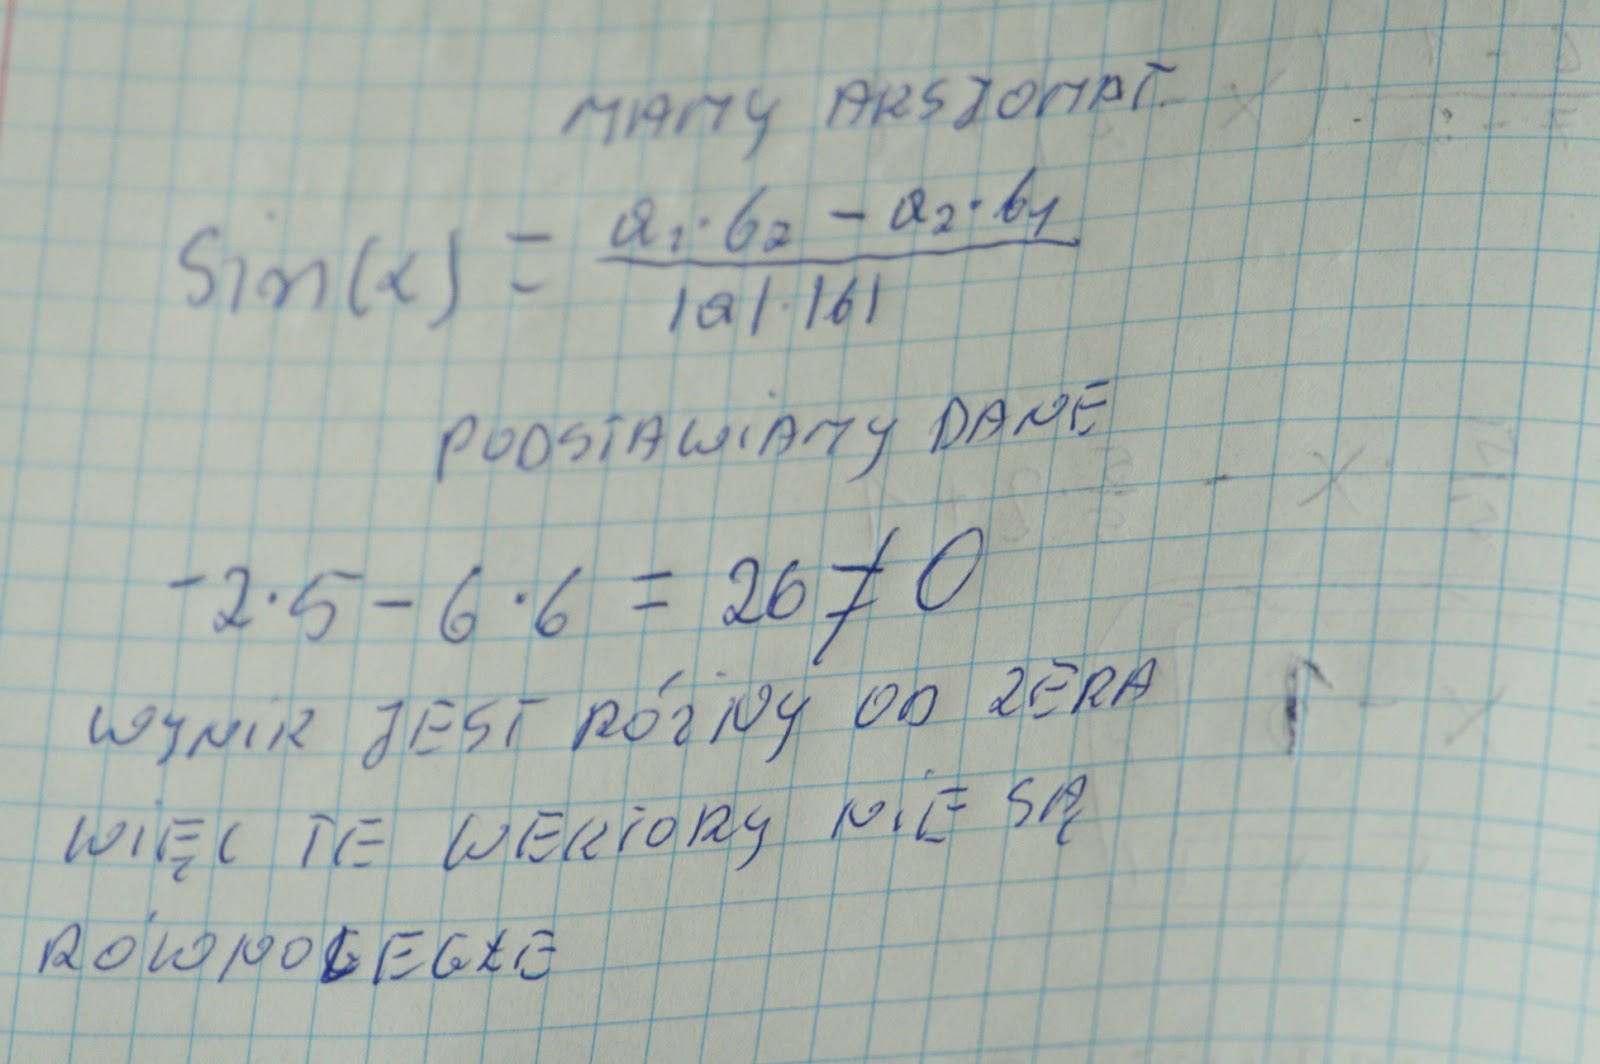 MAMY AKSJOMAT
Sin(α) = a₁·b₂ - a₂·b₁
|a|·|b|
PODSTAWIAMY DANE
-2·5 - 6·6 = 26 ≠ 0
WYNIK JEST RÓŻNY OD ZERA
WIĘC TE WEKTORY NIE SĄ
RÓWNOLEGŁE